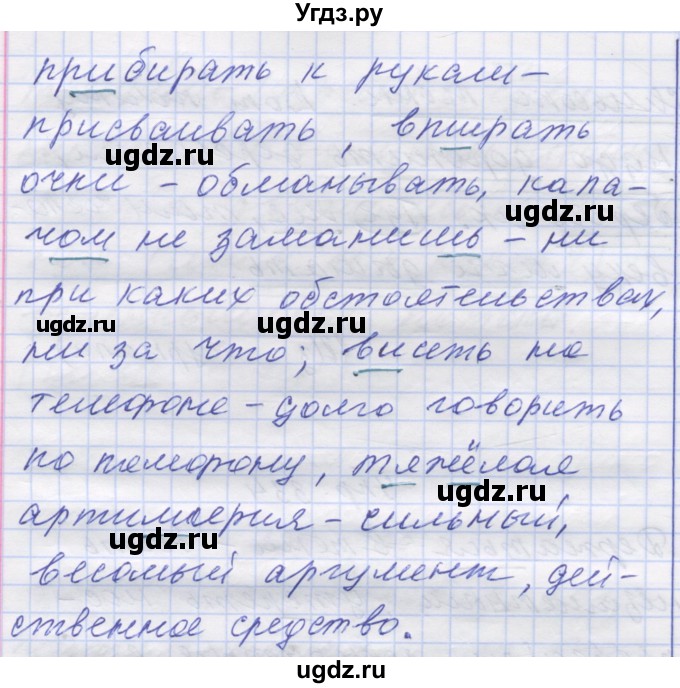 Угдз.ру
прибирать к рукам –
присваивать, впирать
ugdz.ru
очки – обманывать, кала-
ugdz.ru
чом не заманишь – ни
при каких обстоятельствах,
ugdz.ru
ни за что; висеть на
телефоне – долго говорить
по телефону, тяжёлая
ugdz.ru
артиллерия – сильный,
ugdz.ru
весомый аргумент, дей-
ственное средство.
ugdz.ru